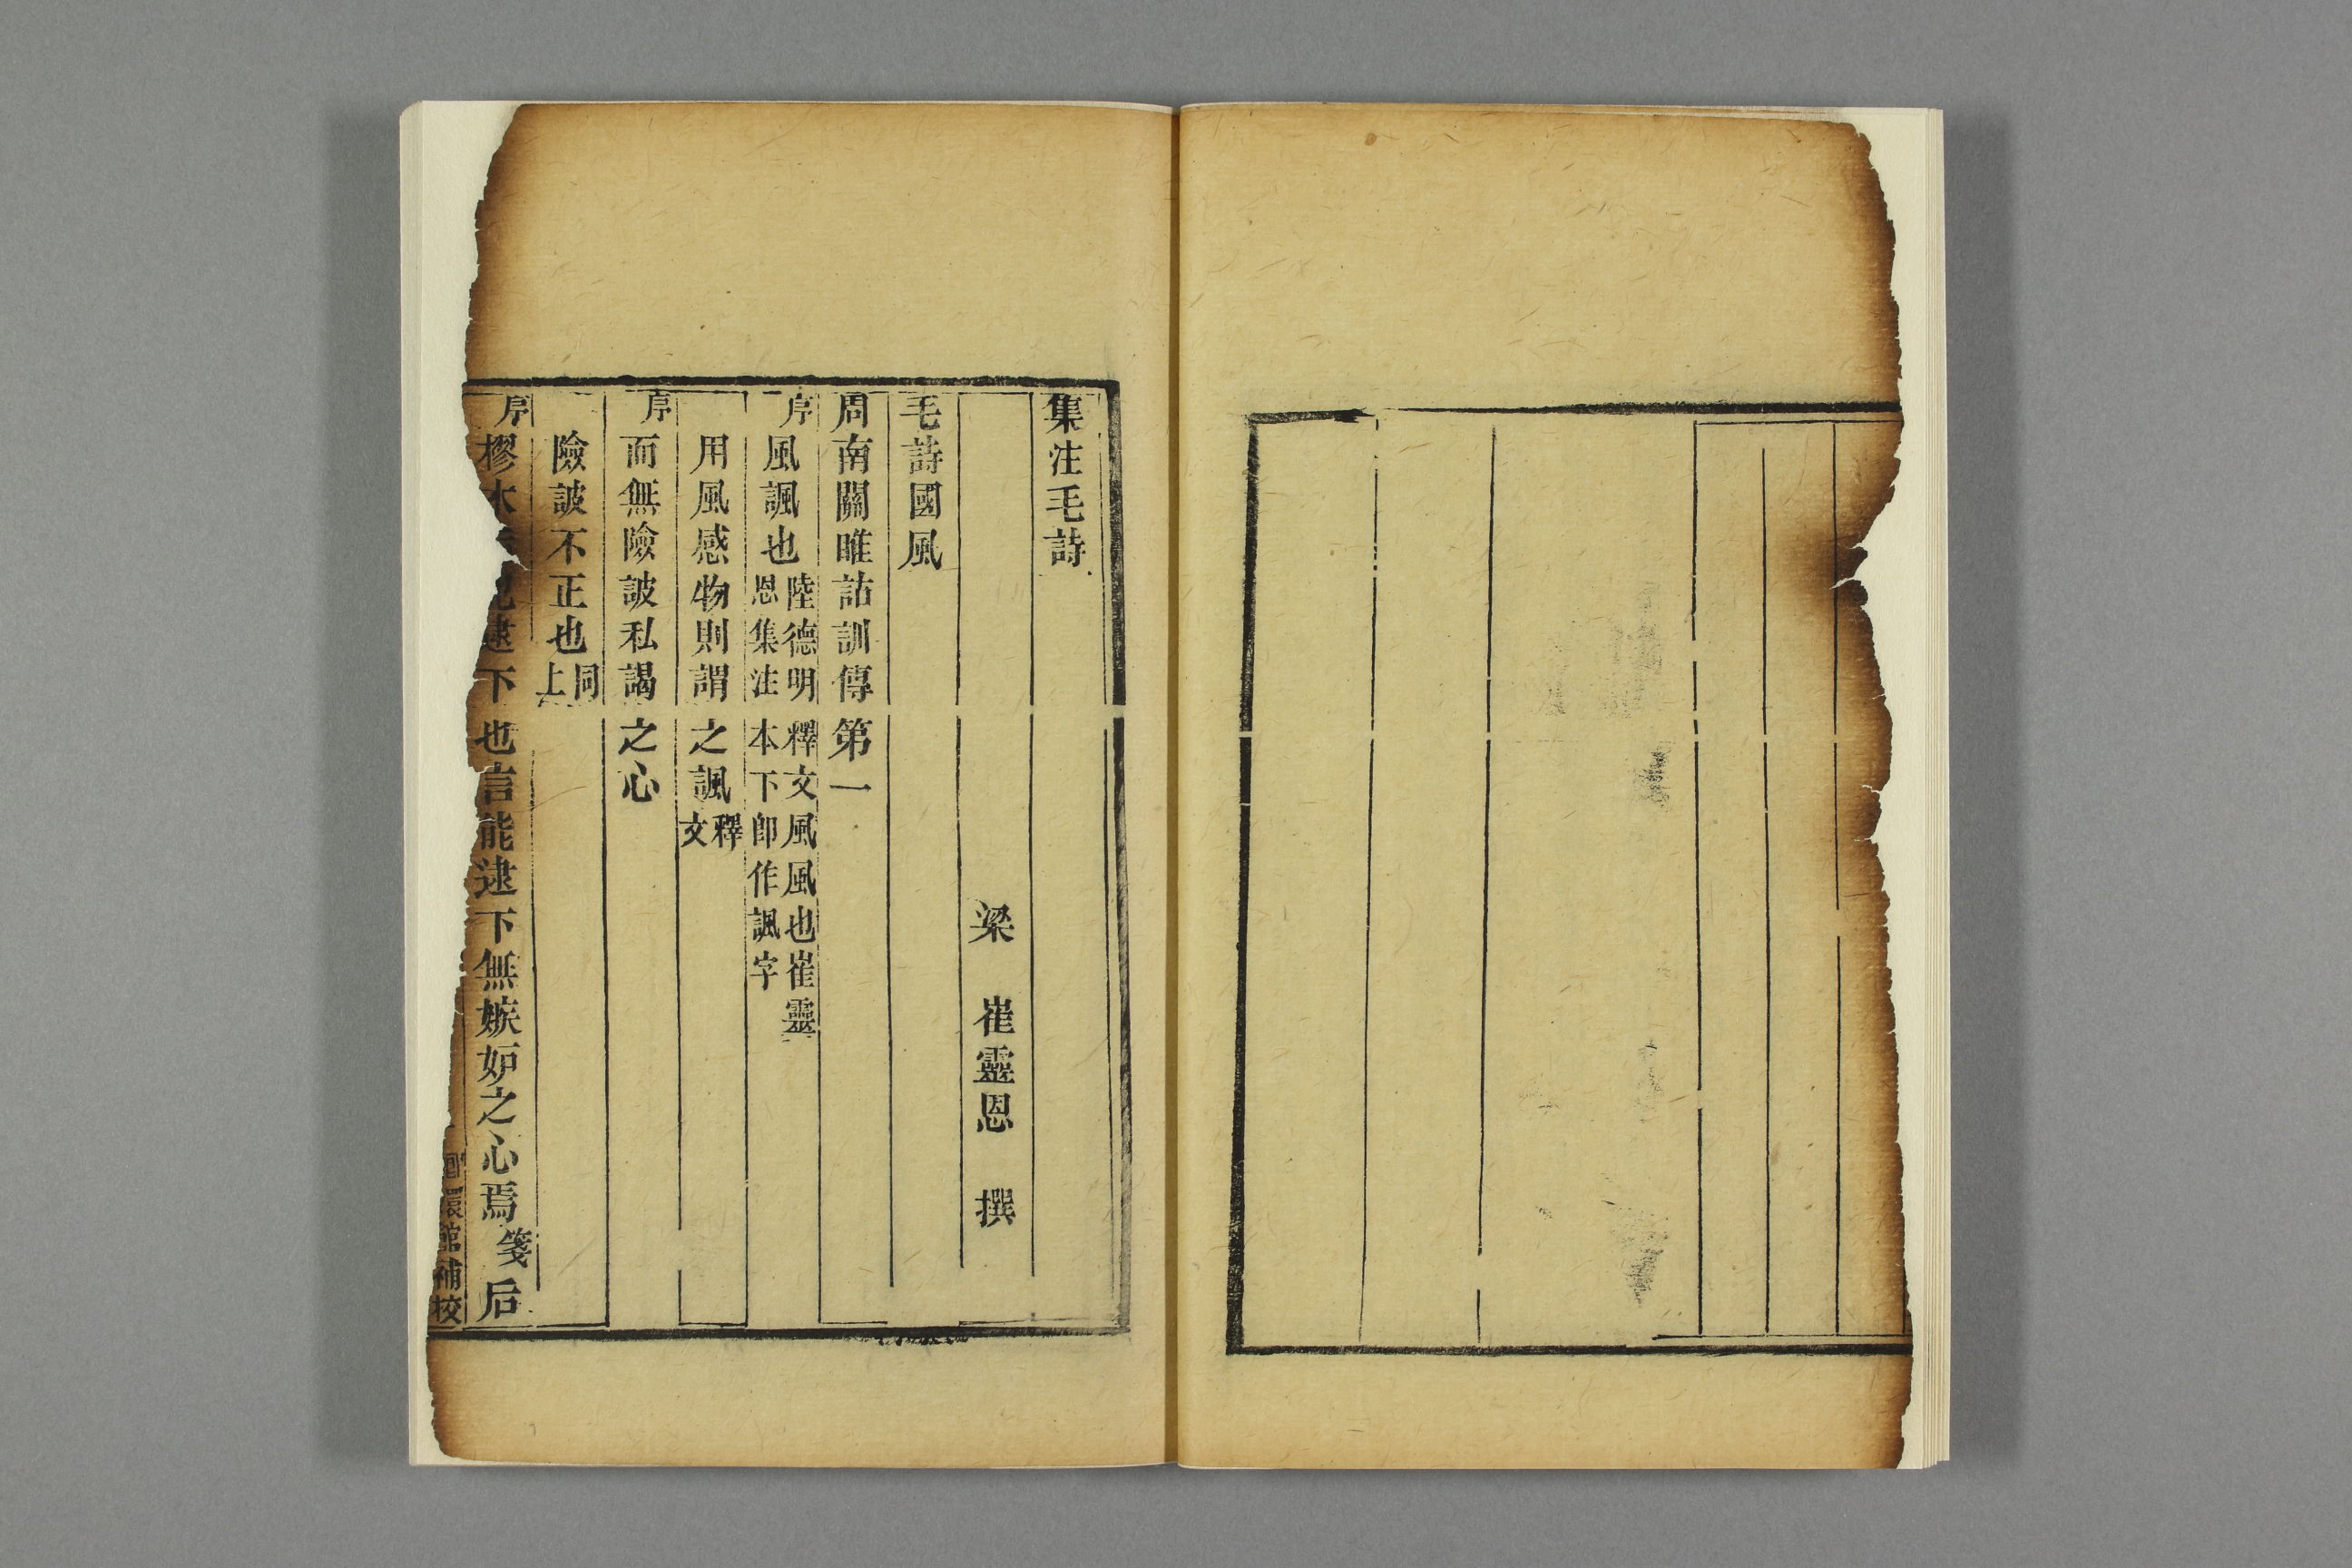 集注毛詩
梁 崔靈恩 撰
毛詩國風
周南關雎詁訓傳第一
序風諷也陸德明釋文風風也崔靈
恩集注本下卽作諷字
用風感物則謂之諷釋
文
序而無險詖私謁之心
險詖不正也同
上
序樛木后妃逮下也言能逮下無嫉妒之心焉箋后
環館補校